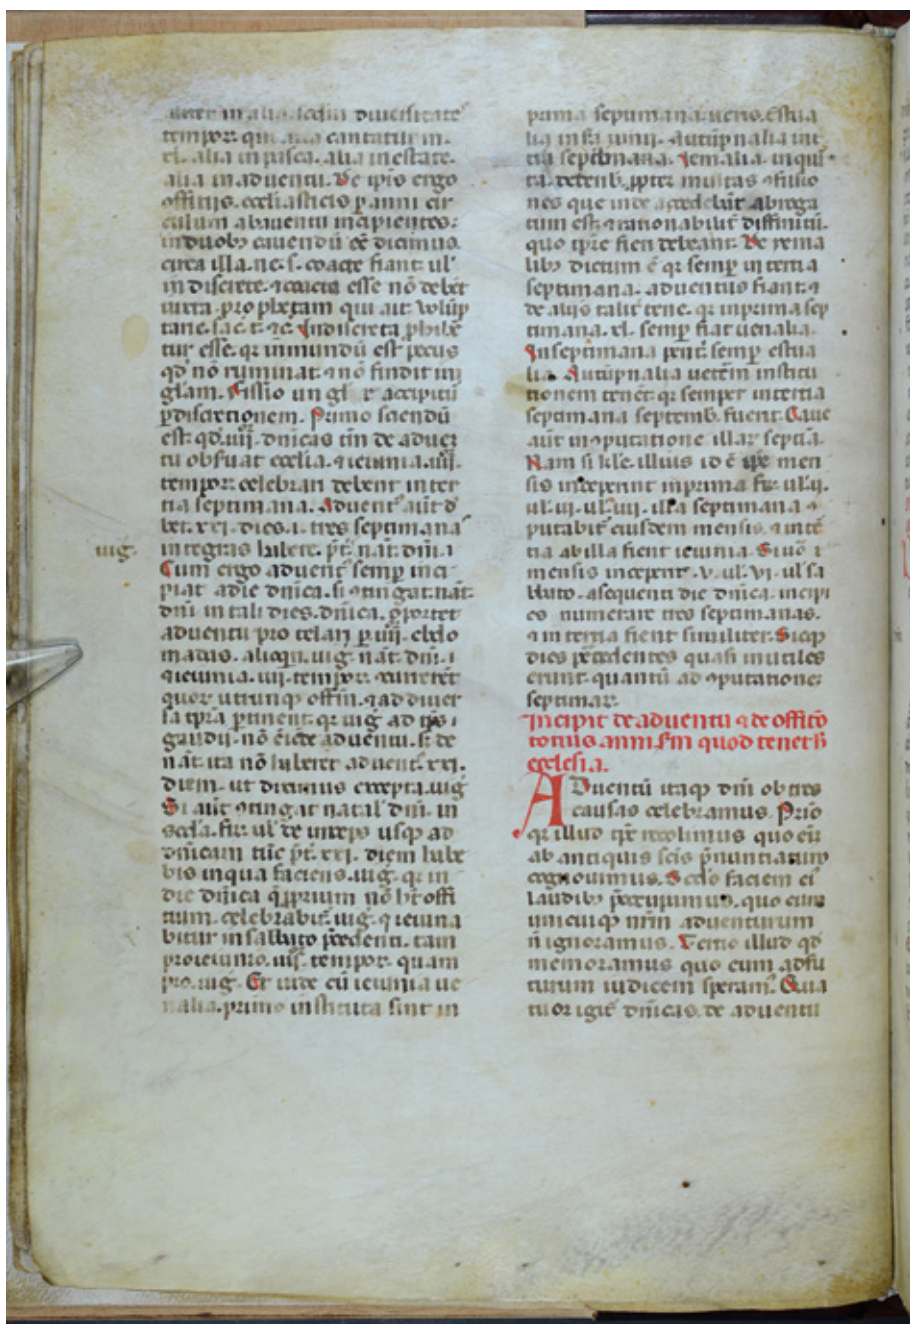 diuersitate
tempor cantatur in
alia in pasca. alia in estate.
alia in aduentu. De ipis ergo
offitijs. eccliasticis p anni cir
culum ab aduentu incipientes.
in duobȝ cauendū eē dicimus.
circa illa. ne. s. coacte fiant ul'
indiscrete. ⁊ coacta esse nō debēt
iuxta prophetam qui ait. Volūp
tarie. sac. t. ⁊c. Indiscreta ꝓhibē
tur esse. qr inmundū est pecus
qd nō ruminat. ⁊ nō findit un
glam. Fissio accipitur
ꝓ discretionem. Primo sciendū
est. qd. iiij. dnicas tm de aduen
tu obseruat ecclia. ⁊ ieiunia. iiij.
tempor. celebrari debent in ter
tia septimana. Aduent' aūt d'
bet. xxi. dies. i. tres septimanas
uig.
integras habere. nāt. dni.
Cum ergo aduent' semp inci
piat a die dnica. si ↄtingat. nāt.
dni in tali dies. dnica. oportet
aduentū pro telari p iiij. ebdo
madas. alioqn. uig. nāt. dni. ⁊
ieiunia. iiij. tempor
quor utrunqȝ offm. ⁊ ad diuer
sa tpra ptinent. qr uig. ad tps
gaudij. nō aduentu. de
nāt. ita nō haberet aduent'. xxi.
diem. ut dicimus excepta. uig.
Si aūt ↄtingat natal' dni. in
scda. fer. ul' deinceps usqȝ ad
dnicam tūc xxi. diem habe
bis in qua facies. uig. qr in
die dnica prium nō ht offi
tium. celebrabit'. uig. ⁊ ieiuna
bitur in sabbato pcedenti. tam
pro ieiunio. iiij. tempor. quam
pro. uig. Et inde cū ieiunia ue
nalia. primo instituta sint in
prima septimana. ueris. Estiua
lia in fra iunij. Autūpnalia in
tia septēbnana. Jemalia. in qui
ta. decenb. ꝓpter multas ↄfusio
nes que inde accedebāt abroga
tum est. ⁊ rationabilit' diffinitū.
quo tpre fieri debeant. De iema
libȝ dictum ē qr semp in tertia
septimana. aduentus fiant. ⁊
de alijs talit' tene. qr in prima sep
timana. xl. semp fiat uenalia.
In septimana pent. semp estiua
lia. Autūpnalia ueterem institu
tionem tenēt. qr semper in tertia
septimana septemb. fuent. Caue
aūt in ↄputatione illar. septia.
Nam si kl'e. illius id ē ipse men
sis inceperint in prima fer. ul'. ij.
ul'. iij. ul'. iiij. illa septimana ↄ
putabit' eiusdem mensis. ⁊ in tē
tia ab illa fient ieiunia. Si uō
mensis inceperit. v. ul'. vi. ul' sa
bbato. a sequenti die dnica. incipi
es numerare tres septimanas.
⁊ in tertia fient similiter. Sicqȝ
dies pcedentes quasi inutiles
erunt. quantū ad ↄputatione
septimar.
Incipit de aduentu ⁊ de offitio
totius anni. scdm quod tenet h
ecclesia.
ADuentū itaqȝ dni ob tres
causas celebramus. Primo
qr illud tpr recolimus quo eū
ab antiquis scis pnuntiatum
cognouimus. Scdo faciem ei
laudibȝ preoccupimus. quo eum
unicuiqȝ nrm aduenturum
n ignoramus. Tertio illud qd
memoramus quo eum adfu
turum iudicem speram'. Qua
tuor igit' dnicis. de aduentu